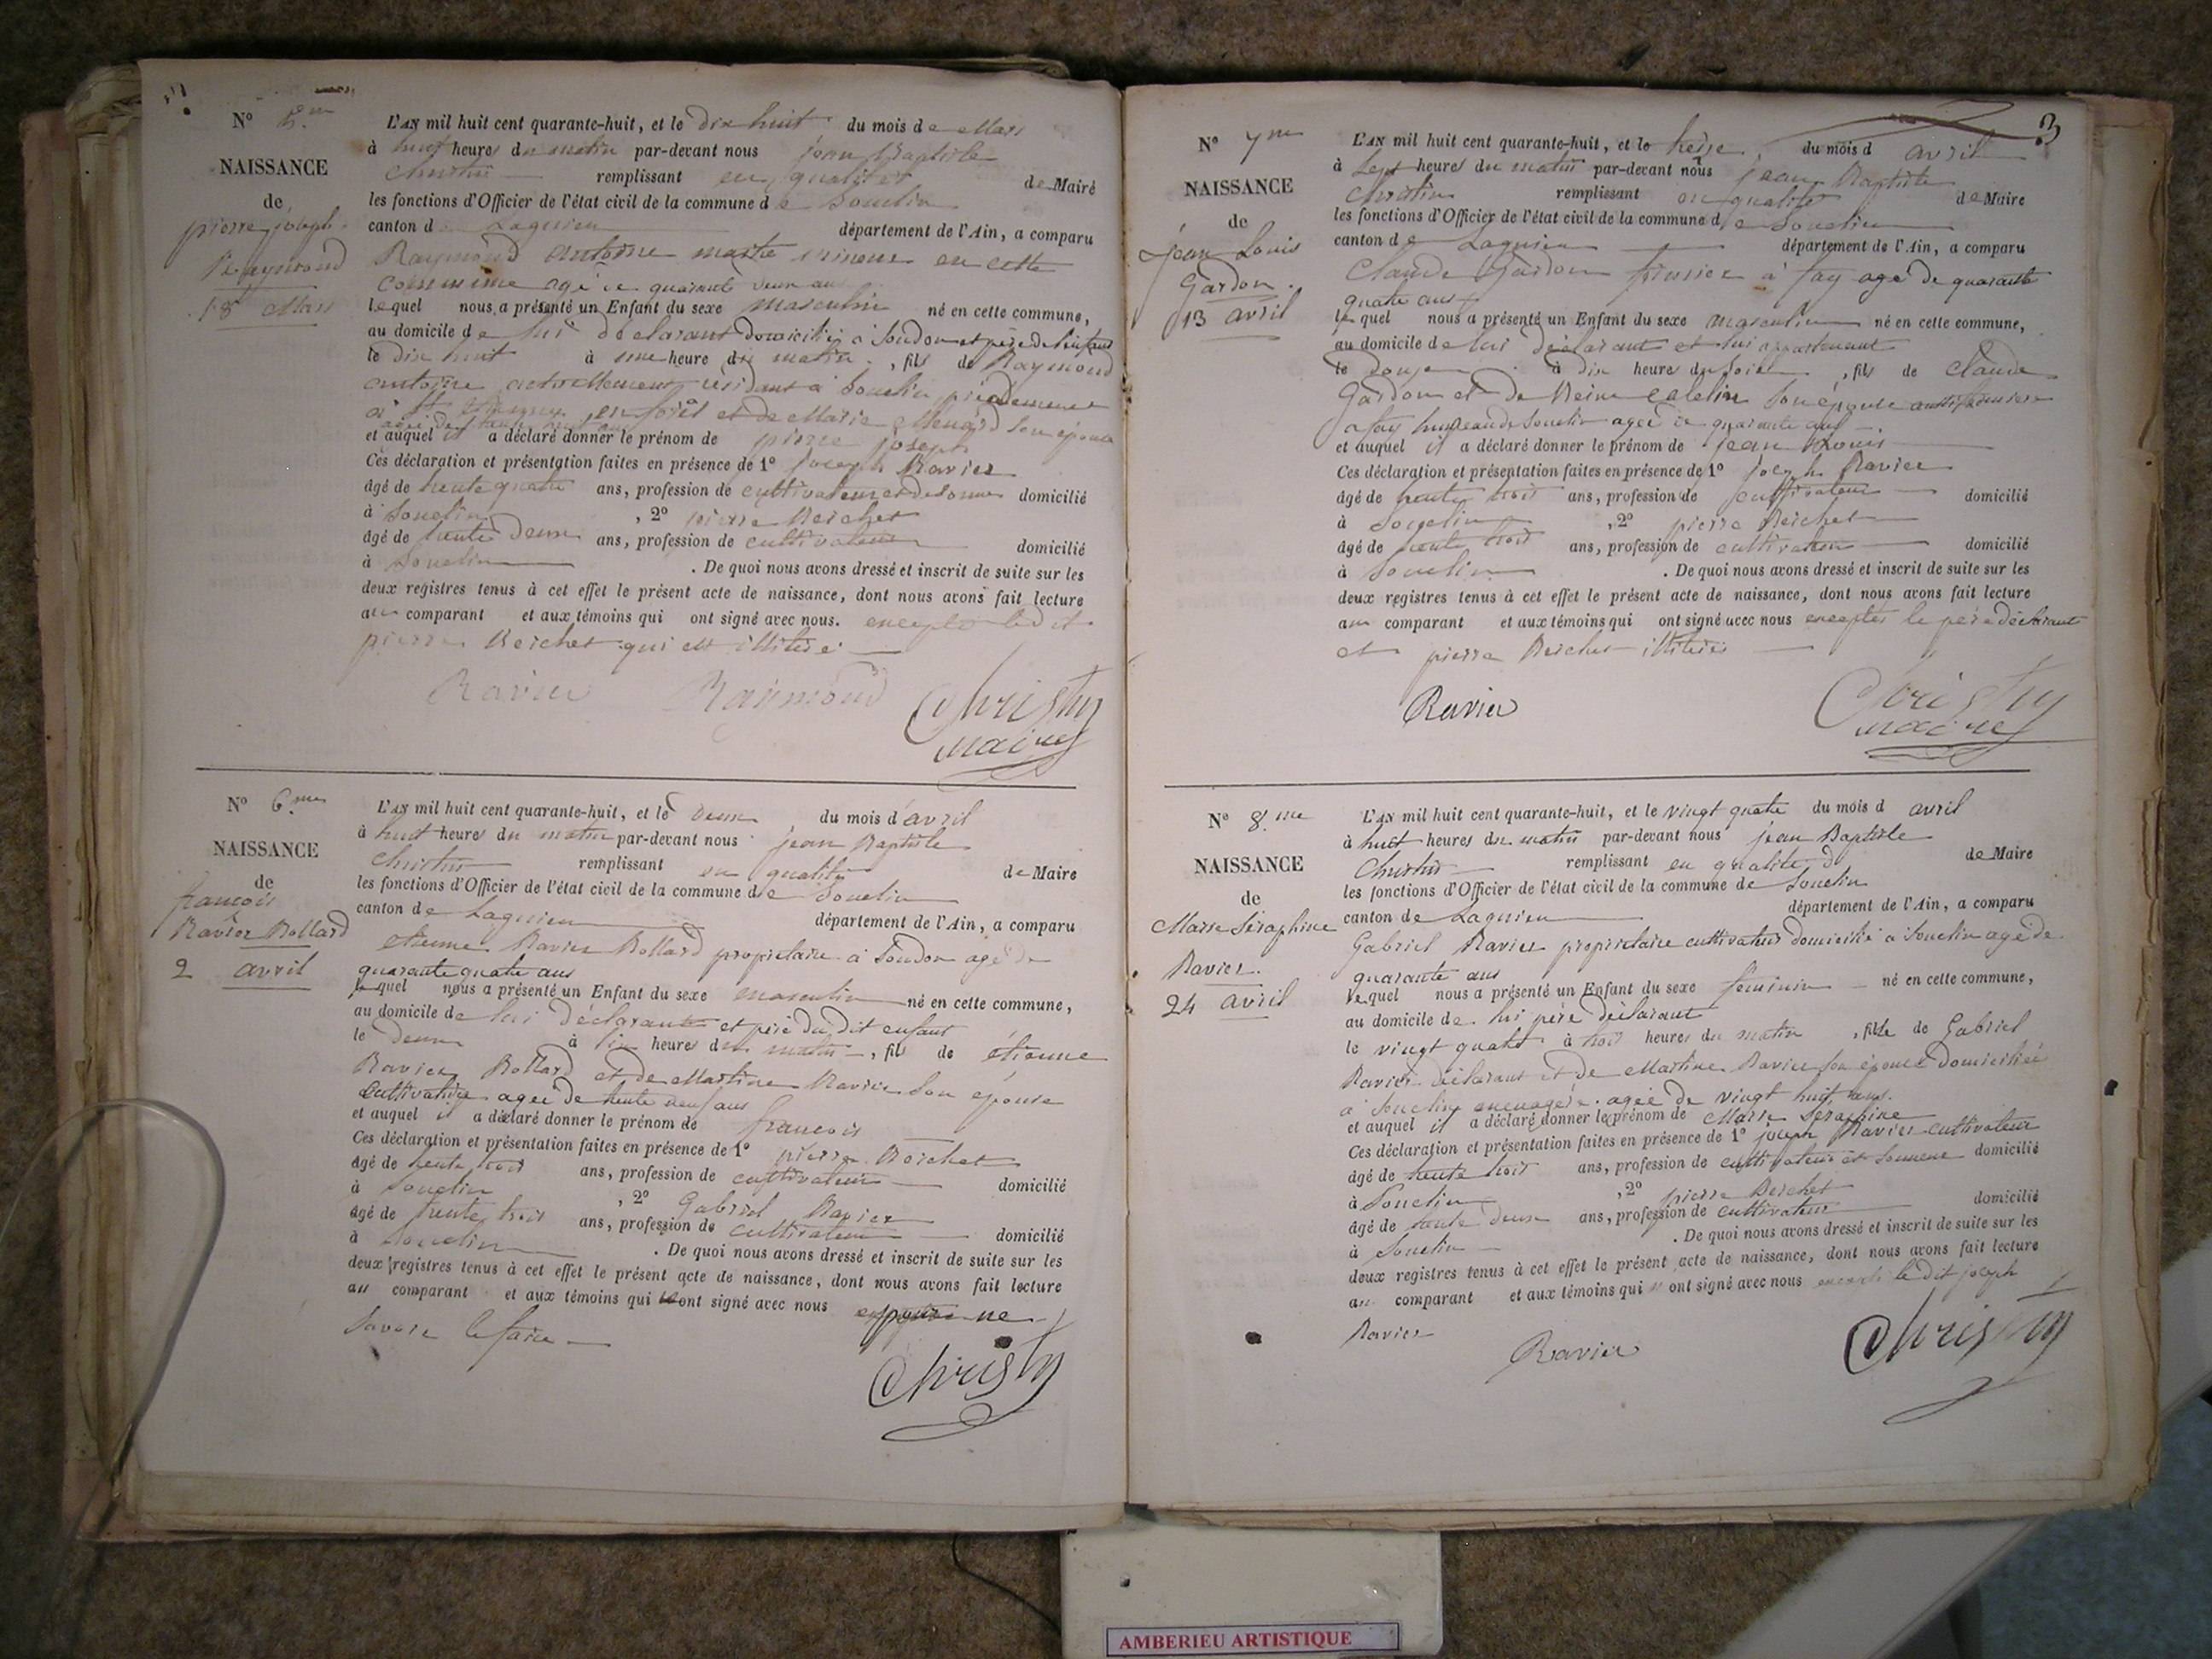 N° 5.me
NAISSANCE
de
pierre joseph
Raymond
18 Mars
L'AN mil huit cent quarante-huit, et le dix huit du mois de Mars
à huit heures du matin par-devant nous jean Baptiste
Christin remplissant en qualité de Maire
les fonctions d'Officier de l'état civil de la commune de Souclin
canton de Lagnieu département de l'Ain, a comparu
Raymond antoine maitre mineur en cette
commune agé de quarante deux ans
lequel nous a présenté un Enfant du sexe masculin né en cette commune,
au domicile de lui déclarant domicilié à Soudon et père de l'enfant
le dix huit à une heure du matin, fils de Raymond
antoine actuellement résidant à Souclin
et de Marie Menard son épouse
et auquel il a déclaré donner le prénom de pierre joseph
Ces déclaration et présentation faites en présence de 1° joseph Ravier
âgé de trente quatre ans, profession de cultivateur domicilié
à Souclin, 2° pierre Reichet
âgé de trente deux ans, profession de cultivateur domicilié
à Souclin. De quoi nous avons dressé et inscrit de suite sur les
deux registres tenus à cet effet le présent acte de naissance, dont nous avons fait lecture
au comparant et aux témoins qui ont signé avec nous. excepté ledit
pierre Reichet qui est illitéré
Ravier Raymond Christin
maire
N° 6.me
NAISSANCE
de
francois
Ravier Rollard
2 avril
L'AN mil huit cent quarante-huit, et le deux du mois d'avril
à huit heures du matin par-devant nous jean Baptiste
Christin remplissant en qualité de Maire
les fonctions d'Officier de l'état civil de la commune de Souclin
canton de Lagnieu département de l'Ain, a comparu
etienne Ravier Rollard propriétaire à Soudon agé de
quarante quatre ans
lequel nous a présenté un Enfant du sexe masculin né en cette commune,
au domicile de lui déclarant et père du dit enfant
le deux à six heures du matin, fils de étienne
Ravier Rollard et de Martine Ravier son épouse
Cultivatrice agée de trente neuf ans
et auquel il a déclaré donner le prénom de francois
Ces déclaration et présentation faites en présence de 1° pierre Reichet
âgé de trente trois ans, profession de cultivateur domicilié
à Souclin, 2° Gabriel Ravier
âgé de trente trois ans, profession de cultivateur domicilié
à Souclin. De quoi nous avons dressé et inscrit de suite sur les
deux registres tenus à cet effet le présent acte de naissance, dont nous avons fait lecture
au comparant et aux témoins qui ont signé avec nous ne
savoir le faire
Christin
3
N° 7me
NAISSANCE
de
jean Louis
Gardon.
13 avril
L'AN mil huit cent quarante-huit, et le treize du mois d avril
à sept heures du matin par-devant nous jean Baptiste
Christin remplissant en qualité de Maire
les fonctions d'Officier de l'état civil de la commune de Souclin
canton de Lagnieu département de l'Ain, a comparu
Claude Gardon fermier à fay agé de quarante
quatre ans
lequel nous a présenté un Enfant du sexe masculin né en cette commune,
au domicile de lui déclarant et lui appartenant
le douze à dix heures du soir, fils de Claude
Gardon et de Reine son épouse aussi fermiere
a fay hameau de Souclin agée de quarante ans
et auquel il a déclaré donner le prénom de jean Louis
Ces déclaration et présentation faites en présence de 1° joseph Ravier
âgé de trente trois ans, profession de cultivateur domicilié
à Souclin, 2° pierre Reichet
âgé de trente trois ans, profession de cultivateur domicilié
à Souclin. De quoi nous avons dressé et inscrit de suite sur les
deux registres tenus à cet effet le présent acte de naissance, dont nous avons fait lecture
au comparant et aux témoins qui ont signé avec nous exceptés le père déclarant
et pierre Reichet illitérés
Ravier Christin
maire
N° 8.me
NAISSANCE
de
Marie Séraphine
Ravier.
24 avril
L'AN mil huit cent quarante-huit, et le vingt quatre du mois d avril
à huit heures du matin par-devant nous jean Baptiste
Christin remplissant en qualité de Maire
les fonctions d'Officier de l'état civil de la commune de Souclin
canton de Lagnieu département de l'Ain, a comparu
Gabriel Ravier propriétaire cultivateur domicilié à Souclin agé de
quarante ans
lequel nous a présenté un Enfant du sexe féminin né en cette commune,
au domicile de lui père déclarant
le vingt quatre à trois heures du matin, fille de Gabriel
Ravier déclarant et de Martine Ravier son épouse domiciliée
à Souclin menagère. agée de vingt huit ans.
et auquel il a déclaré donner le prénom de Marie Séraphine
Ces déclaration et présentation faites en présence de 1° joseph Ravier cultivateur
âgé de trente trois ans, profession de cultivateur domicilié
à Souclin, 2° pierre Reichet
âgé de trente deux ans, profession de cultivateur domicilié
à Souclin. De quoi nous avons dressé et inscrit de suite sur les
deux registres tenus à cet effet le présent acte de naissance, dont nous avons fait lecture
au comparant et aux témoins qui ont signé avec nous excepté le dit joseph
Ravier
Ravier Christin
AMBERIEU ARTISTIQUE